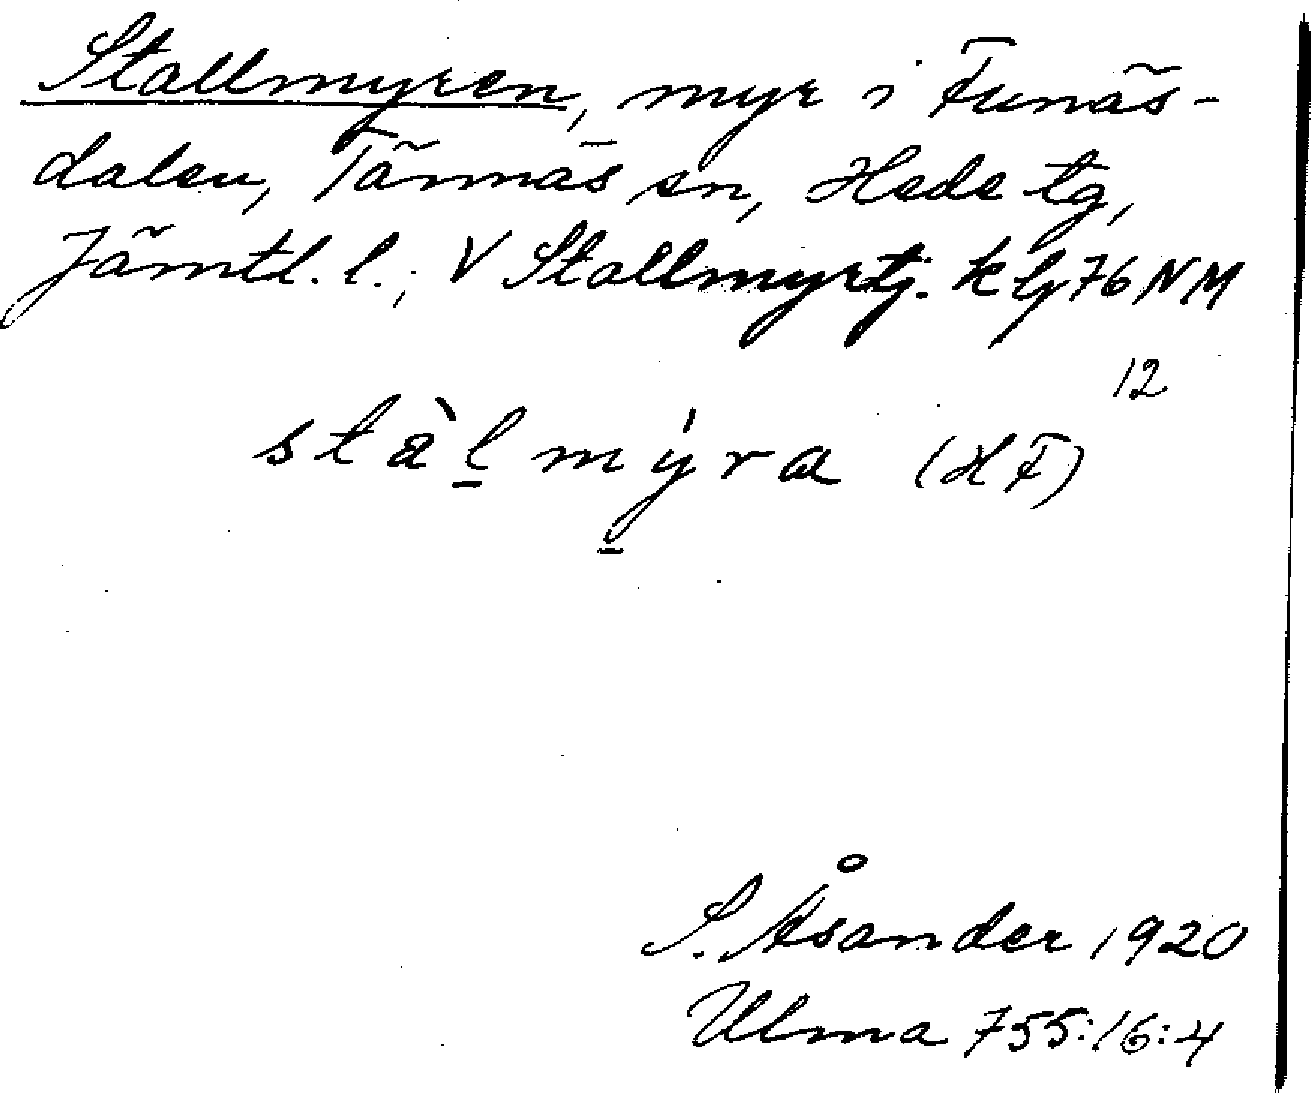 Stallmyren, myr i Funäs-
dalen, Tännäs sn, Hede tg,
Jämtl. l.; V Stallmyrtj. k bl 76 NM
12
stàl mýra (HF)
S. Åsander 1920
Ulma 755:16:4